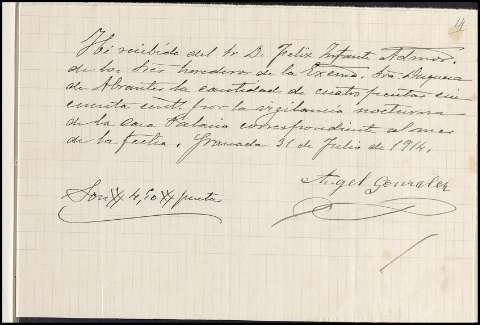 14
He recibido del Sr. D. Felix Infante Admor.
de los Sres herederos de la Excma. Sra Duquesa
de Abrantes la cantidad de cuatro pesetas cin
cuenta cents. por la vigilancia nocturna
de la Casa Palacio correspondiente al mes
de la fecha. Granada 31 de Julio de 1914.
Angel Gonzalez
Son 4,50 pesetas